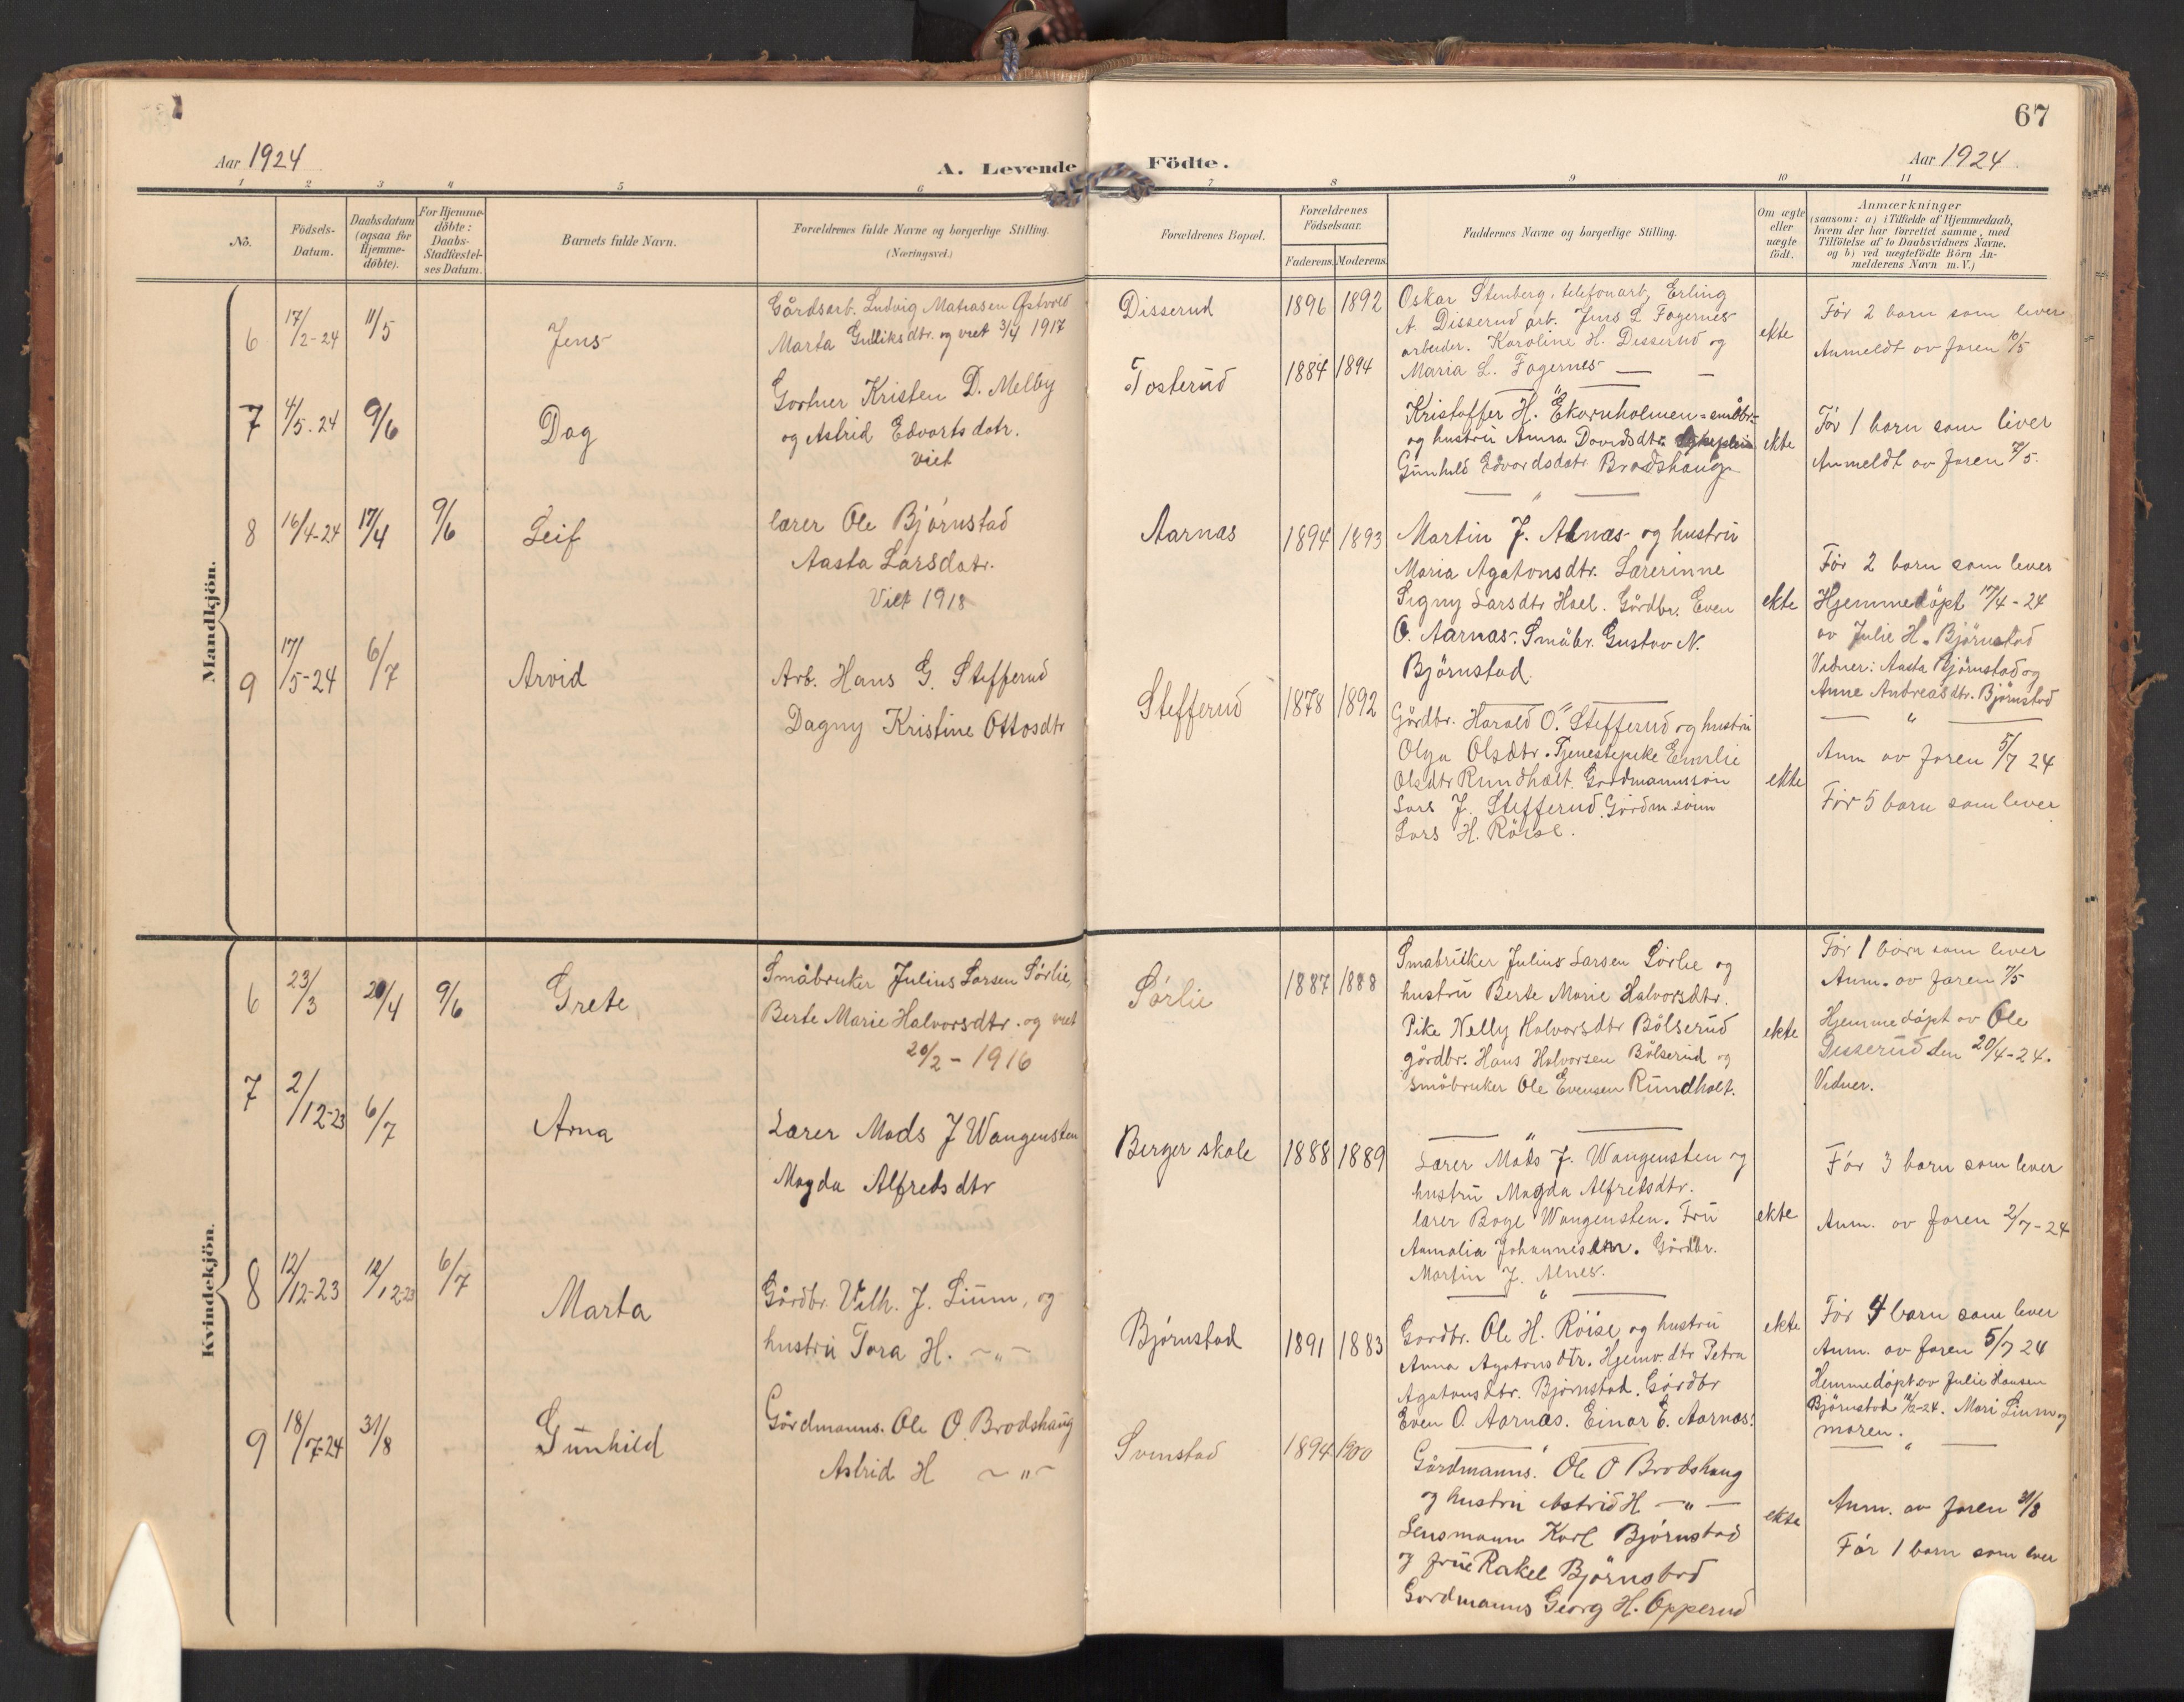 67
Aar 1924
A. Levende Födte.
Aar 1924
1 2 3 4 5 6 7 8 9 10 11
No.
Födsels-Datum.
Daabsdatum (ogsaa for Hjemme-döbte).
For Hjemme-döbte: Daabs-Stadfæstel-ses Datum.
Barnets fulde Navn.
Forældrenes fulde Navne og borgerlige Stilling.
(Næringsvei.)
Forældrenes Bopæl.
Forældrenes Födselsaar.
Faderens. Moderens.
Faddernes Navne og borgerlige Stilling.
Om ægte eller uægte födt.
Anmærkninger
(saasom: a) i Tilfælde af Hjemmedaab,
hvem der har forrettet samme, med
Tilföielse af to Daabsvidners Navne.
og b) ved uægtefödte Börn An-
melderens Navn m. V.)
Mandkjön.
6 17/2-24 11/5 Jens
Gårdsarb. Ludvig Matiasen Østvold
Marta Gulliksdtr. og viet 3/4 1917
Disserud 1896 1892
Oskar Stenberg, telefonarb, Erling
A. Disserud arb. Jens L Fagernes
arbeider. Karoline H. Disserud og
Maria L. Fagernes
ekte
Før 2 barn som lever
Anmeldt av faren 10/5
7 4/5-24 9/6 Dag
Gartner Kristen D. Melby
og Astrid Edvartsdatr.
viet
Tosterud 1884 1894
Kristoffer H. Ekornholmen småbr.
og hustru Anna Davidsdtr.
Gunhild Edvardsdatr Brodshaug
ekte
Før 1 barn som lever
Anmeldt av faren 7/5.
8 16/4-24 17/4 9/6 Leif
lærer Ole Bjørnstad
Aasta Larsdatr.
Viet 1918
Aarnæs 1894 1893
Martin J. Alnæs og hustru
Maria Agatonsdtr. Lærerinne
Signy Larsdtr Hoel. Gårdbr. Even
O. Aarnæs. Småbr. Gustav N.
Björnstad.
ekte
Før 2 barn som lever
Hjemmedöpt 17/4-24
av Julie H. Björnstad
Vidner: Aasta Björnstad og
Anne Andreasdtr. Björnstad
9 17/5-24 6/7 Arvid
Arb. Hans G. Stefferud
Dagny Kristine Ottosdtr
Stefferud 1878 1892
Gårdbr. Harald O. Stefferud og hustru
Olga Olsdtr. Tjenestepike Emilie
Olsdtr Rundholt. Gardmannssön
Lars J. Stefferud. Gårdm. sönn
Lars H. Röise.
ekte
Anm av faren 5/7 24
Før 5 barn som lever
Kvindekjön.
6 23/3 20/4 9/6 Grete
Småbruker Julius Larsen Sørlie,
Berte Marie Halvorsdtr. og viet
20/2 - 1916
Sørlie 1887 1888
Småbruker Julius Larsen Sørlie og
hustru Berte Marie Halvorsdtr.
Pike Nelly Halvorsdtr Bölserud
gårdbr. Hans Halvorsen Bölserud og
småbruker Ole Evensen Rundholt.
ekte
Før 1 barn som lever
Anm. av faren 7/5
Hjemmedöpt av Ole
Disserud den 20/4-24.
Vidner.
7 2/12-23 6/7 Arna
Lærer Mads J Wangensten
Magda Alfredsdtr
Berger skole 1888 1889
Lærer Mads J. Wangensten og
hustru Magda Alfredsdtr.
lærer Boye Wangensten. Fru
Annalia Johannesen. Gårdbr.
Martin J. Alnes.
ekte
Før 3 barn som lever
Anm. av faren 2/7-24
8 12/12-23 12/12-23 6/7 Marta
Gårdbr. Vilh. J. Lium, og
hustru Tora H. —"—
Bjørnstad 1891 1883
Gardbr. Ole H. Röise og hustru
Anna Agatonsdtr. Hjemv. dtr Petra
Agatonsdtr. Bjørnstad. Gårdbr
Even O. Aarnæs. Einar E. Aarnæs.
ekte
Før 4 barn som lever
Anm. av faren 5/7 24
Hemmedöpt av Julie Hansen
Björnstad 12/12-24. Mari Lium og
moren.
9 18/7-24 31/8 Gunhild
Gårdmanns. Ole O. Brodshaug
Astrid H —"—
Svinstad 1894 1900
Gårdmanns. Ole O Brodshaug
og hustru Astrid H —"—
Lensmann Karl Bjørnstad
og frue Rakel Björnstad
Gardmanns Georg H. Opperud
ekte
Anm. av faren 31/8
Før 1 barn som lever